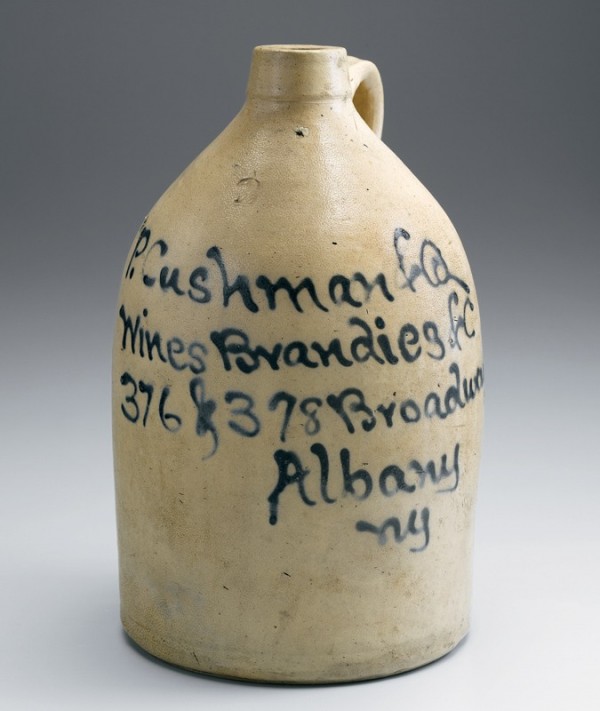 P. Cushman & Co
Wines Brandies &C
376 & 378 Broadway
Albany
ny